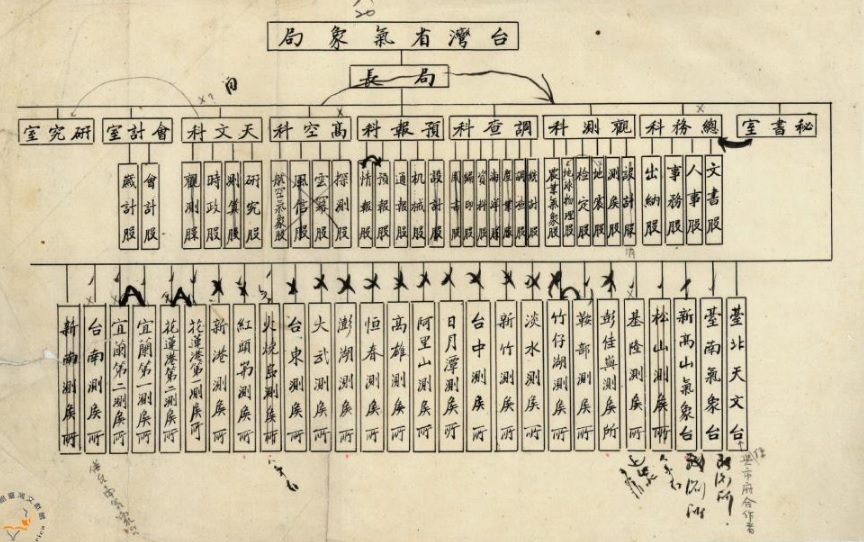 台灣省氣象局
局長
秘書室
總務科
觀測科
調查科
預報科
高空科
天文科
會計室
研究室
文書股
人事股
事務股
出納股
設計股
測候股
地震股
檢定股
地球物理股
農業氣象股
統計股
調查股
海洋股
資料股
編印股
圖書股
設計股
机械股
通報股
預報股
情報股
探測股
風信股
航空氣象股
研究股
測算股
時政股
觀測股
會計股
歲計股
臺北天文台
臺南氣象台
新高山氣象台
松山測候所
基隆測候所
彭佳嶼測候所
鞍部測候所
竹仔湖測候所
淡水測候所
新竹測候所
台中測候所
日月潭測候所
阿里山測候所
高雄測候所
恒春測候所
澎湖測候所
大武測候所
台東測候所
火燒島測候所
紅頭嶼測候所
新港測候所
花蓮港第一測候所
花蓮港第二測候所
宜蘭第一測候所
宜蘭第二測候所
台南測候所
新南測候所
與市府合作者